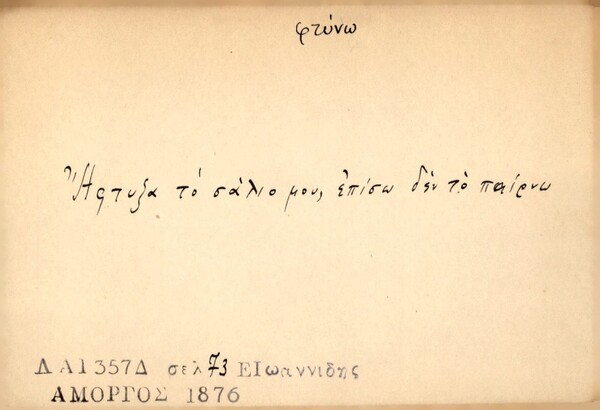 φτύνω
Ἤφτυξα τὸ σάλιο μου, ἐπίσω δὲν τὸ παίρνω
ΛΑ1357Δ σελ 73 ΕΙωαννιδης
ΑΜΟΡΓΟΣ 1876